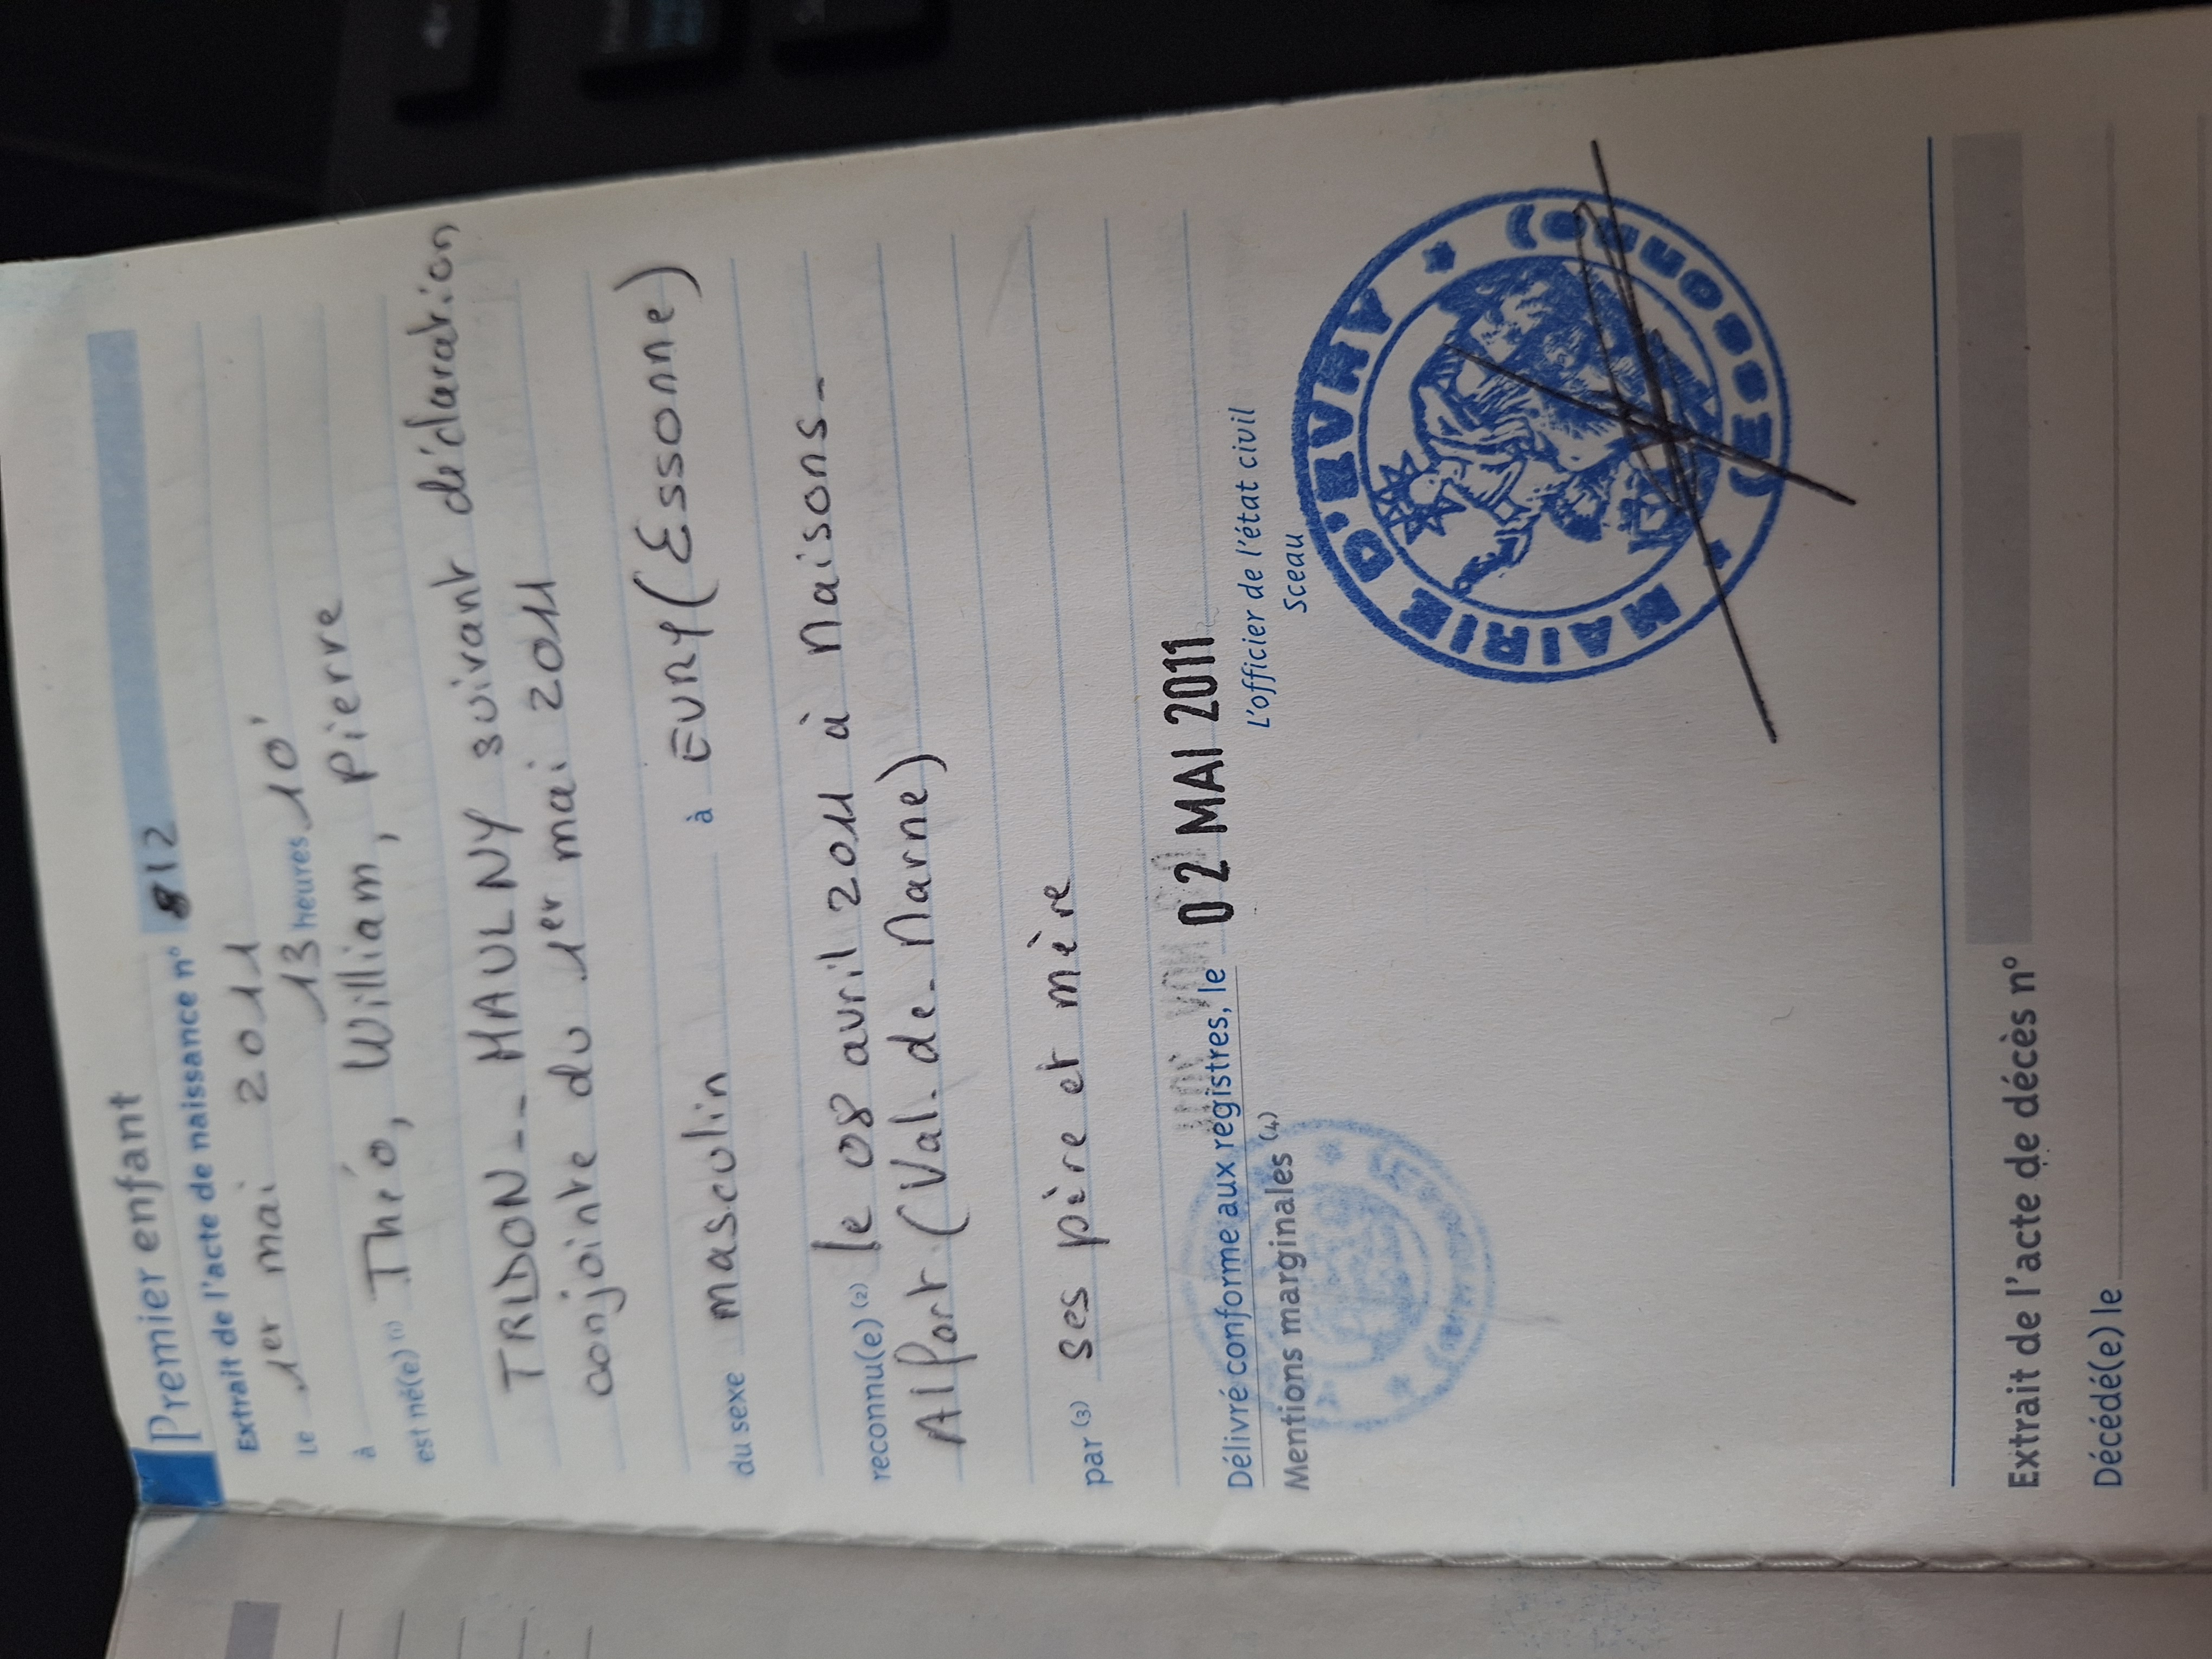 Premier enfant
Extrait de l'acte de naissance n° 812
Le 1er mai 2011
à 13 heures 10'
est né(e) (1) Théo, William, Pierre
TRIDON -- MAULNY suivant déclaration
conjointe du 1er mai 2011
du sexe masculin à EVRY (Essonne)
reconnu(e) (2) le 08 avril 2011 à Maisons-
Alfort (Val-de-Marne)
par (3) ses père et mère
Délivré conforme aux registres, le 02 MAI 2011
Mentions marginales (4)
L'officier de l'état civil
Sceau
MAIRIE D'EVRY * (ESSONNE) *
Extrait de l'acte de décès n°
Décédé(e) le